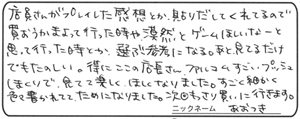 店員さんがプレイした感想とか、貼りだしてくれてるので
買おうかまよって行った時や漠然とゲームほしいなーと
思って行った時とか、選ぶ参考になる。あと見てるだけ
でもたのしい。得にここの店長さん、ファルコムすごいプッシュ
しまくりで、見てて楽しく、ほしくなりました。すごく細かく
色々書かれててためになりました。次回もっさり買いに行きます。
ニックネーム あおつき